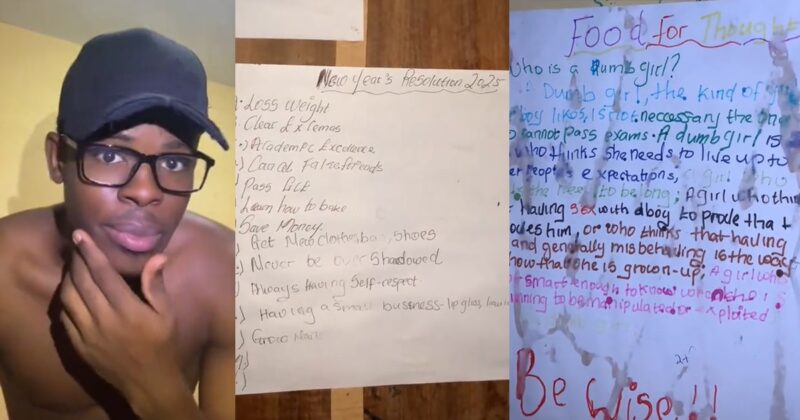 New Year's Resolution 2025
Loss weight
Clear Exiemas
Academic Excellence
Cancel False friends
Pass
Learn how to bake
Save Money
Get New clothes bag, shoes
Never be over shadowed
Always Having Self-respect
Having a small business-lipgloss,
Grow
Food for Thought
Who is a Dumb girl?
Dumb girl, the kind of
boy likes, is not neccessary the one
cannot pass exams. A dumb girl is
who thinks she needs to live up to
people's expectations, A girl who
the need to belong; A girl who thin
having sex with a boy to prove that
loves him, or who thinks that having
and generally misbehaving is the way
show that she is grown-up; A girl who
smart enough to know when she is
running to be manipulated or exploited
Be Wise!!